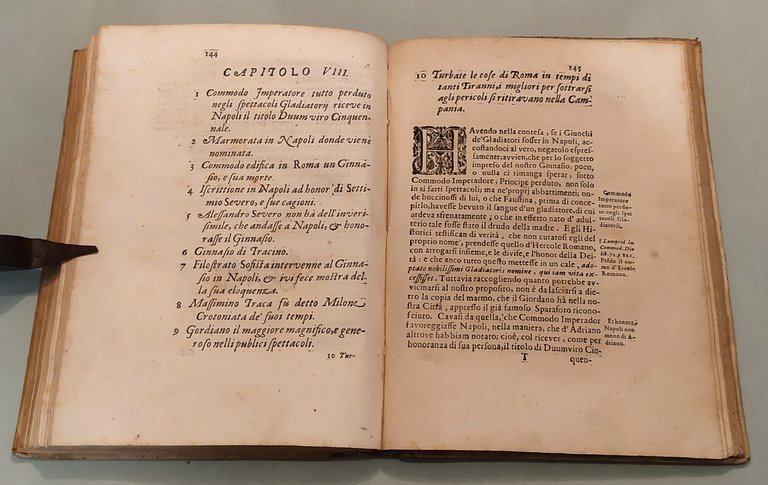 144
CAPITOLO VIII.
1 Commodo Imperatore tutto perduto
negli spettacoli Gladiatorij riceve in
Napoli il titolo Duum viro Cinquen-
nale.
2 Marmorata in Napoli donde viene
nominata.
3 Commodo edifica in Roma un Ginna-
sio, e sua morte.
4 Iscrittione in Napoli ad honor di Setti-
mio Severo, e sue cagioni.
5 Alessandro Severo non hà dell'inveri-
simile, che andasse a Napoli, & hono-
rasse il Ginnasio.
6 Ginnasio di Tracino.
7 Filostrato Sofista intervenne al Ginna-
sio in Napoli, & ivi fece mostra del-
la sua eloquenza.
8 Massimino Traca fù detto Milone
Crotoniata de' suoi tempi.
9 Gordiano il maggiore magnifico, e gene-
roso nelli publici spettacoli.
10 Tur-
145
10 Turbate le cose di Roma in tempi di
tanti Tiranni, i migliori per sottrarsi
agli pericoli si ritiravano nella Cam-
pania.
HAVENDO nella contesa, se i Giuochi
de'Gladiatori fosser in Napoli, ac-
costandoci al vero, negatolo espres-
samente; avvien, che per lo soggetto
impreso del nostro Ginnasio, poco,
o nulla ci rimanga sperar, sotto
Commodo Imperadore; Principe perduto, non solo
in sì fatti spettacoli; ma ne'proprj abbattimenti, on-
de buccinossi di lui, o che Faustina, prima di conce-
pirlo, havesse bevuto il sangue d'un gladiatore, di cui
ardeva sfrenatamente; o che in effetto nato d'adul-
terio tale fosse stato il drudo della madre. E gli Hi-
storici testifican di verità, che non curatosi egli del
proprio nome, prendesse quello d'Hercole Romano,
con arrogarsi insieme, e le divise, e l'honor della Dei-
tà: e che anzi tutto questo mettesse in un cale, adop-
tato nobilissimi Gladiatoris nomine, qui iam vita ex-
cessisset. Tuttavia raccogliendo quanto potrebbe av-
vicinarsi al nostro proposito, non è da lasciarsi a die-
tro la copia del marmo, che il Giordano hà nella no-
stra Città, appresso il già famoso Sparaforo ricono-
sciuto. Cavasi da quella, che Commodo Imperador
favoreggiasse Napoli, nella maniera, che d'Adriano
altrove habbiam notato; cioè, col ricever, come per
honoranza di sua persona, il titolo di Duumviro Cin-
T
quen-
Commodo
Imperatore
tutto perdu-
to negli spet
tacoli Gla-
diatorii.
Lamprid. in
Commod. Dio
lib. 72. p. 821.
Prède il no-
me d'Ercole
Romano.
Et honora
Napoli non
meno di A-
driano.